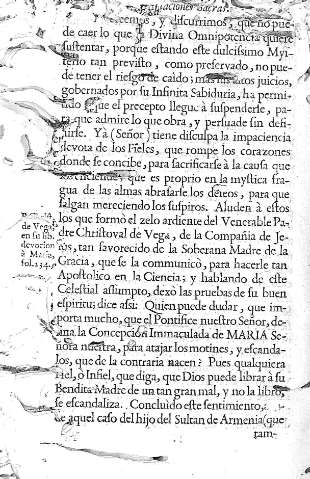 Sacras.
cemos, y discurrimos, que no pue-
de caer lo que la Divina Omnipotencia quiere
sustentar, porque estando este dulcissimo Mys-
terio tan previsto, como preservado, no pue-
de tener el riesgo de caido; mas sus altos juicios,
gobernados por su Infinita Sabiduria, ha permi-
que el precepto llegue à suspenderle, pa-
ra que admire lo que obra, y persuade sin defi-
nirse. Yà (Señor) tiene disculpa la impaciencia
devota de los Fieles, que rompe los corazones
donde se concibe, para sacrificarse à la causa que
que es proprio en la mystica fra-
gua de las almas abrasarse los deseos, para que
salgan mereciendo los suspiros. Aluden à estos
los que formò el zelo ardiente del Venerable Pa-
dre Christoval de Vega, de la Compañia de Je-
sus, tan favorecido de la Soberana Madre de la
Gracia, que se la communicò, para hacerle tan
Apostolico en la Ciencia; y hablando de este
Celestial assumpto, dexò las pruebas de su buen
espiritu; dice assi: Quien puede dudar, que im-
porta mucho, que el Pontifice nuestro Señor, de-
fina la Concepcion Inmaculada de MARIA Se-
ñora nuestra, para atajar los motines, y escanda-
los, que de la contraria nacen? Pues qualquiera
Fiel, ò Infiel, que diga, que Dios puede librar à su
Bendita Madre de un tan gran mal, y no la libro,
se escandaliza. Concluìdo este sentimiento,
e aquel caso del hijo del Sultan de Armenia (que
tam-
de Vega
en su lib.
devocion
à Maria,
fol. 234.